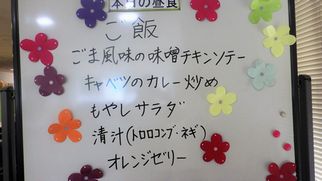 本日の昼食
ご飯
ごま風味の味噌チキンソテー
キャベツのカレー炒め
もやしサラダ
清汁(トロロコンブ・ネギ)
オレンジゼリー